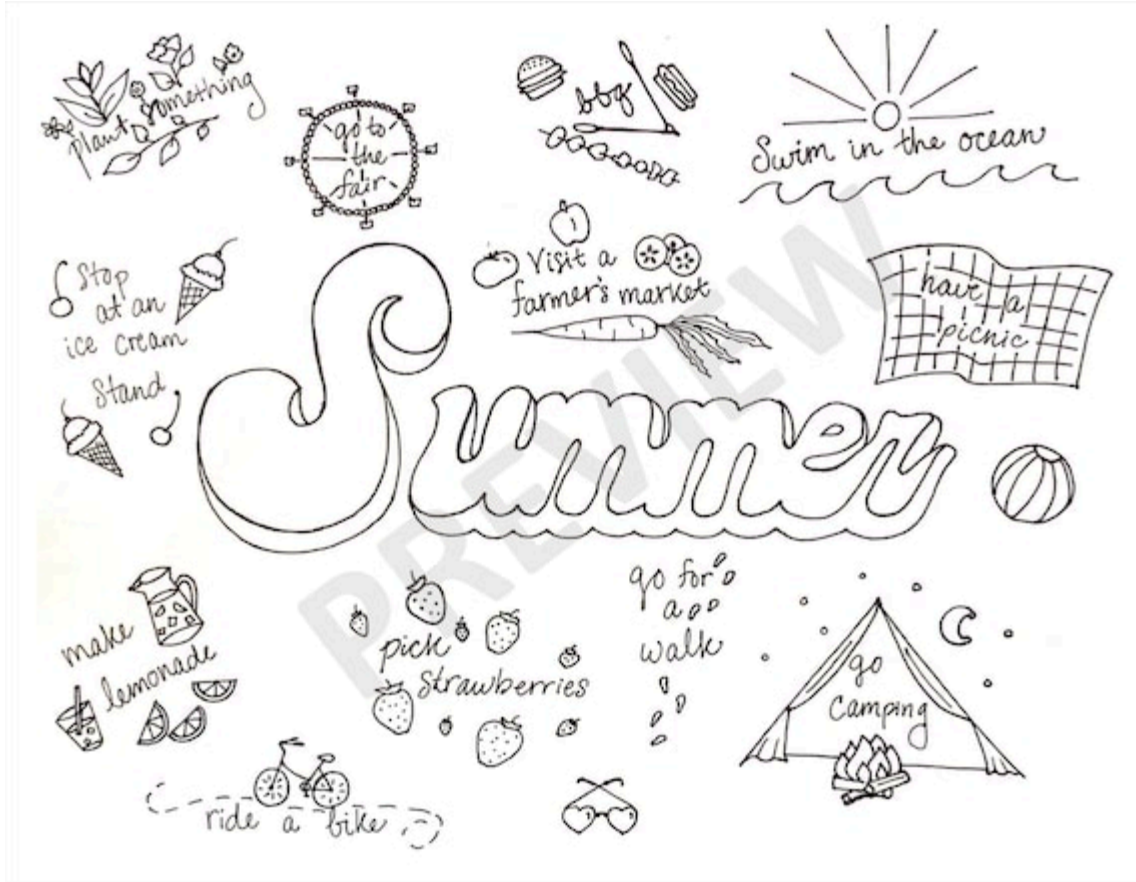 plant something
go to
the
fair
bbq
Swim in the ocean
Stop
at an
ice cream
Stand
Visit a
farmer's market
have a
picnic
Summer
PREVIEW
make
lemonade
pick
strawberries
go for
a
walk
go
camping
ride a bike